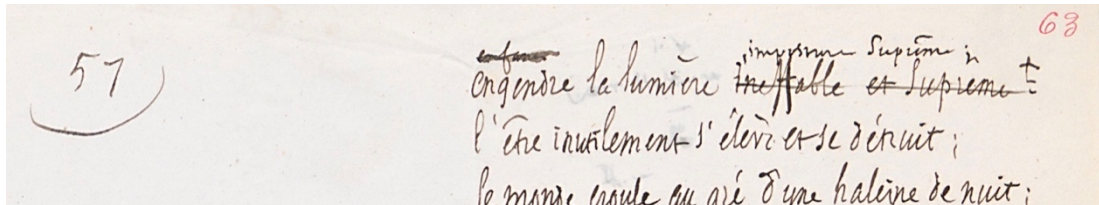 63
57
enfante
imposture Suprême ;
engendre la lumière ineffable et Suprême :
l'être inutilement s'élève et se détruit ;
le monde croule au gré d'une haleine de nuit ;